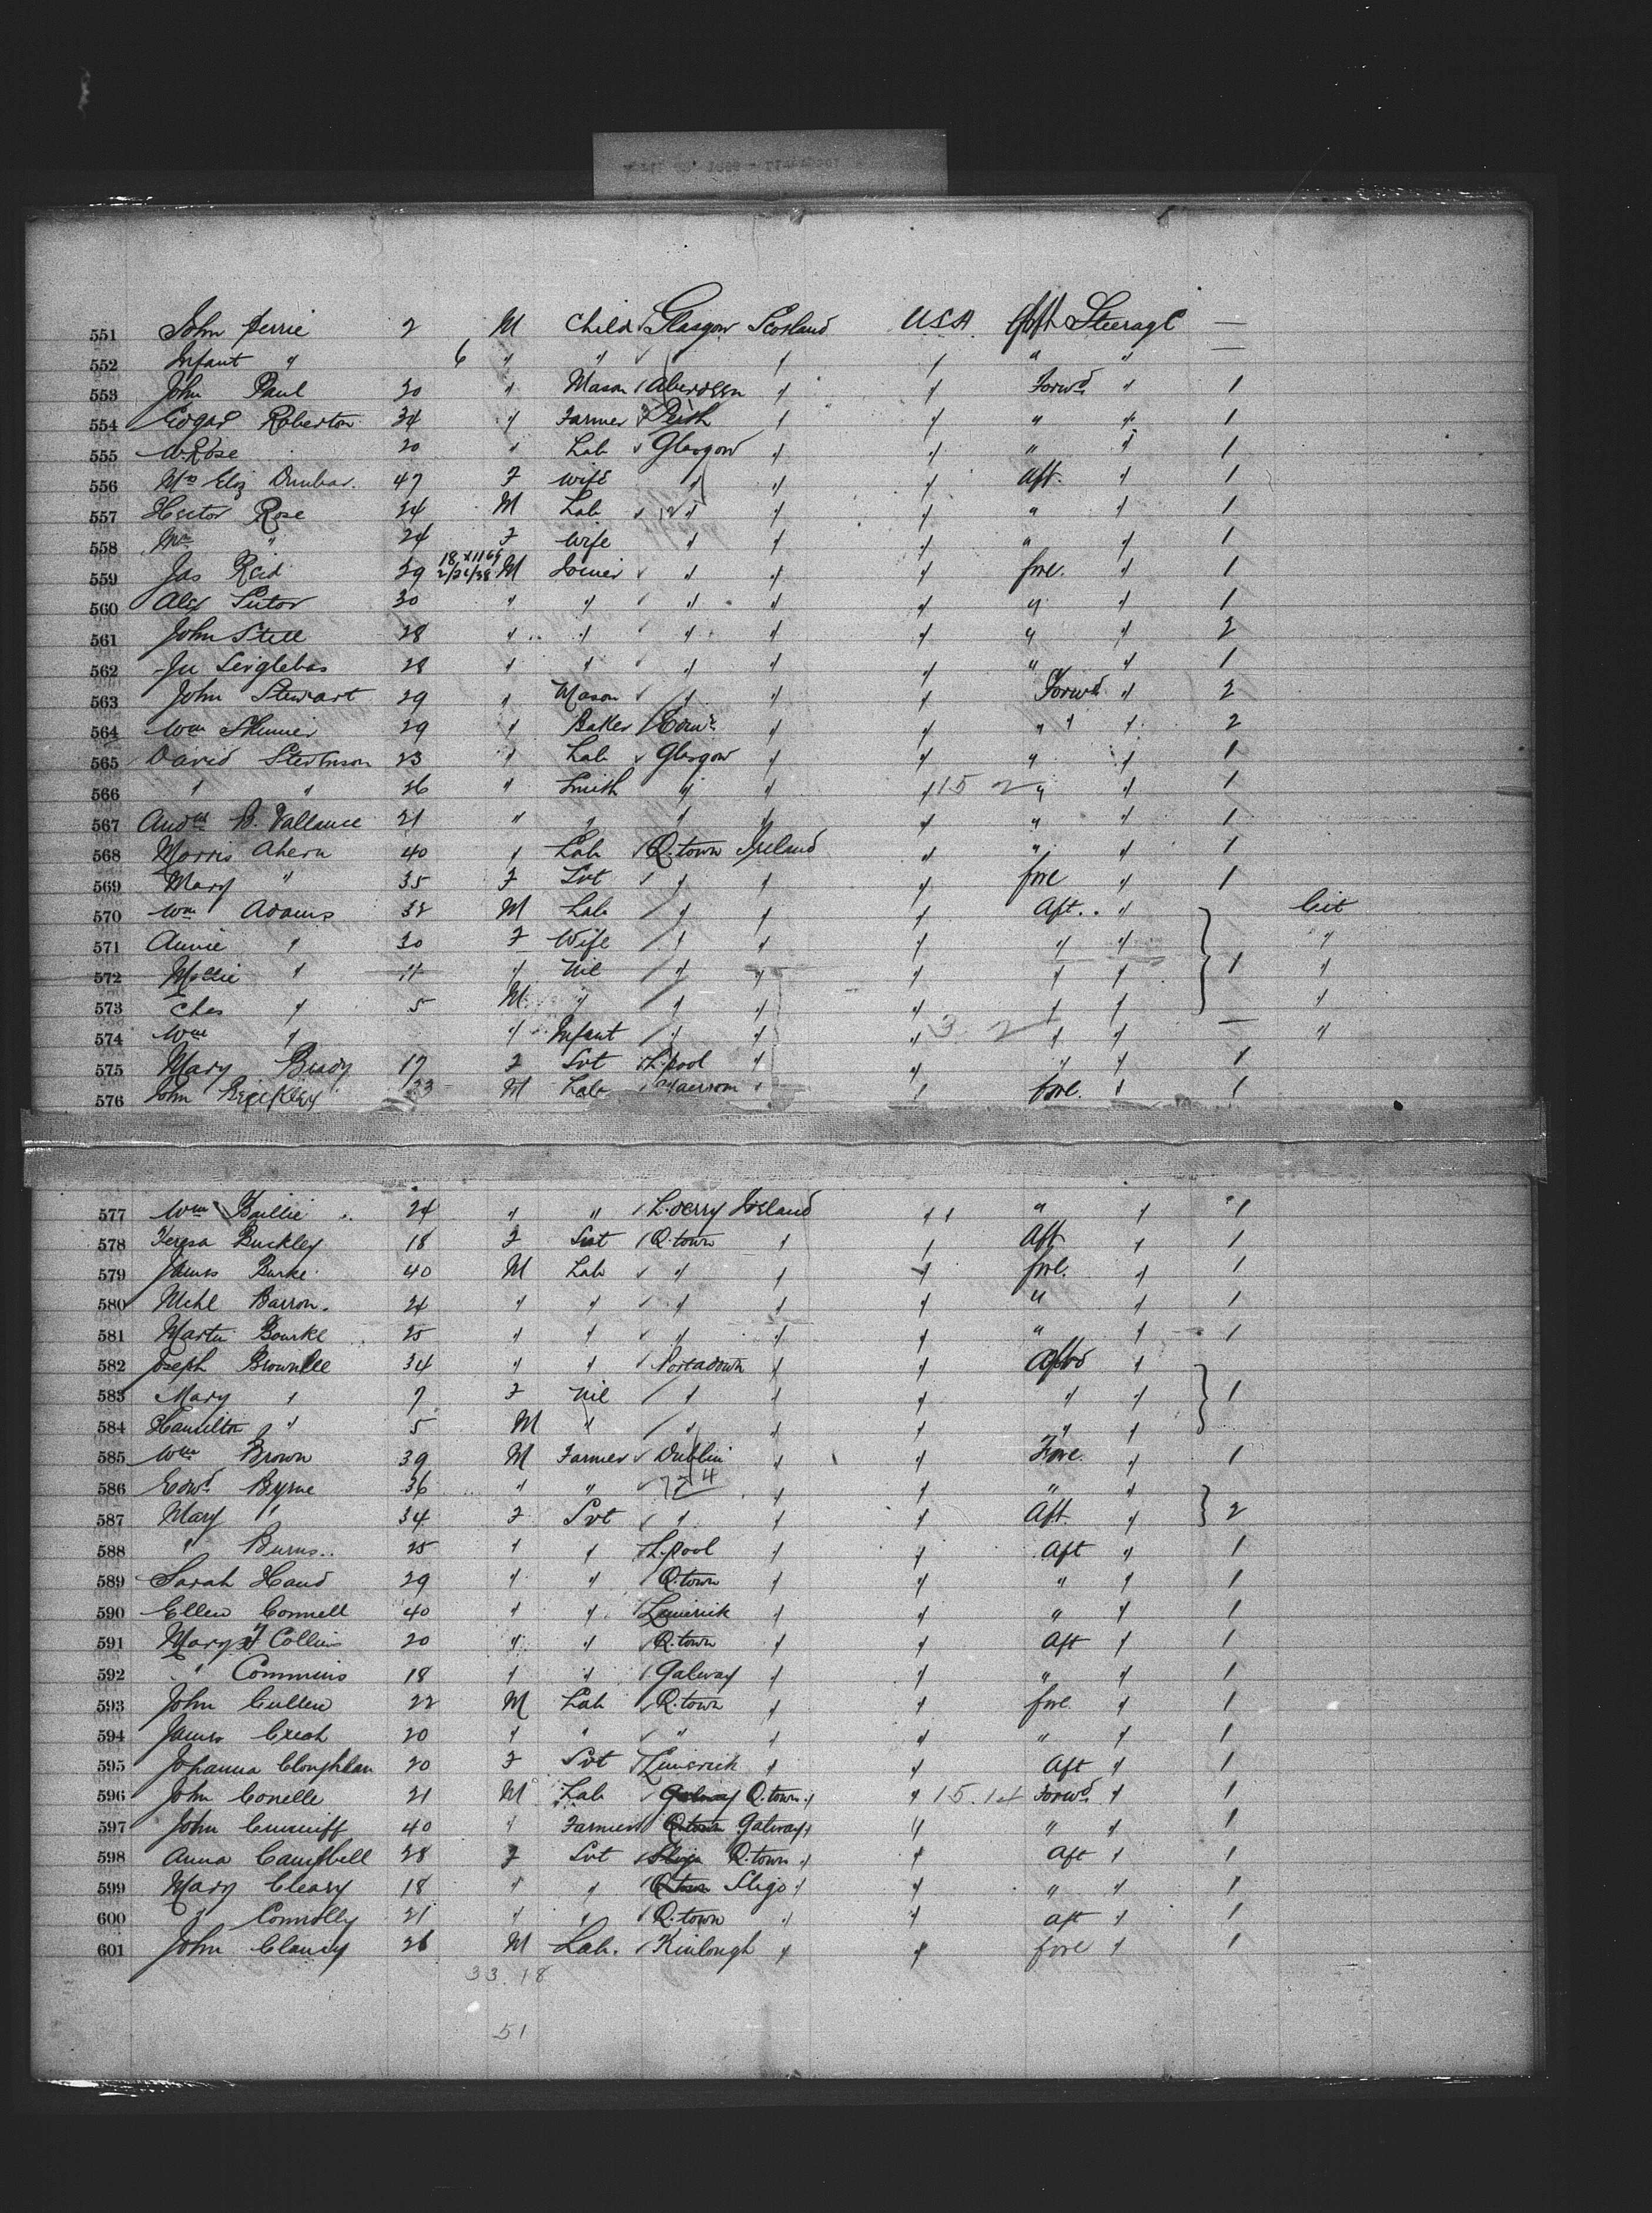 551 John Perrie 2 M Child Glasgow Scotland USA Aft Steerage —
552 Infant " 6 " " " " " " —
553 John Paul 30 " Mason Aberdeen " " Forwd " 1
554 Edgar Roberton 34 " Farmer Perth " " " " 1
555 W. Rose 20 " Lab Glasgow " " " " 1
556 Mrs Eliz Dunbar. 47 F Wife " " " Aft. " 1
557 Hector Rose 24 M Lab " " " " " 1
558 Mrs " 24 F Wife " " " " " 1
559 Jas Reid 29 18 X 1169 2/26/38 M Joiner " " " fore. " 1
560 Alex Sutor 30 " " " " " " " 1
561 John Still 28 " " " " " " " 2
562 28 " " " " " " " 1
563 John Stewart 29 " Mason " " " Forwd " 2
564 Wm Skinner 29 " Baker Edinr " " " " 2
565 David Stevenson 23 " Lab Glasgow " " " " 1
566 " " 26 " Smith " " " 15 2 " " 1
567 Andw B. Vallance 21 " " " " " " " 1
568 Morris Ahern 40 " Lab Q.town Ireland " " " 1
569 Mary " 35 F Svt " " " fore " 1
570 Wm Adams 32 M Lab " " " Aft. " Cit
571 Annie " 30 F Wife " " " " " "
572 Mollie " 11 " Nil " " " " " 1 "
573 Chas " 5 M " " " " " " "
574 Wm " " Infant " " " 3 2 " " — "
575 Mary Brady 17 F Svt L.pool " " " " 1
576 John 23 M Lab " " fore. " 1
577 Wm Baillie 24 " " L.derry Ireland " " " 1
578 Teresa Buckley 18 F Svt Q.town " " Aft " 1
579 James Burke 40 M Lab " " " fore. " 1
580 Michl Barron. 24 " " " " " " " 1
581 Martin Bourke 25 " " " " " " " 1
582 Joseph Brownlee 34 " " Portadown " " Aftwd "
583 Mary " 7 F Nil " " " " " 1
584 Hamilton " 5 M " " " " " "
585 Wm Brown 39 M Farmer Dublin " " Fore. " 1
586 Edwd Byrne 36 " " 72 4 " " " "
587 Mary " 34 F Svt " " " Aft " 2
588 " Burns.. 25 " " L.pool " " Aft " 1
589 Sarah Hand 29 " " Q.town " " " " 1
590 Ellen Connell 40 " " Limerick " " " " 1
591 Mary Collins 20 " " Q.town " " Aft " 1
592 " Commins 18 " " Galway " " " " 1
593 John Cullen 22 M Lab Q.town " " fore. " 1
594 James Creah 20 " " " " " " " 1
595 Johanna Cloughlan 20 F Svt Limerick " " Aft " 1
596 John Conelle 21 M Lab Galway Q.town " " 15.14 Forwd " 1
597 John Cunniff 40 " Farmer Q.town Galway " " " " 1
598 Anna Campbell 28 F Svt Sligo Q.town " " Aft " 1
599 Mary Cleary 18 " " Q.town Sligo " " " " 1
600 " Connolly 21 " " Q.town " " aft " 1
601 John Clancy 26 M Lab. Kinlough " " fore " 1
33.18
51